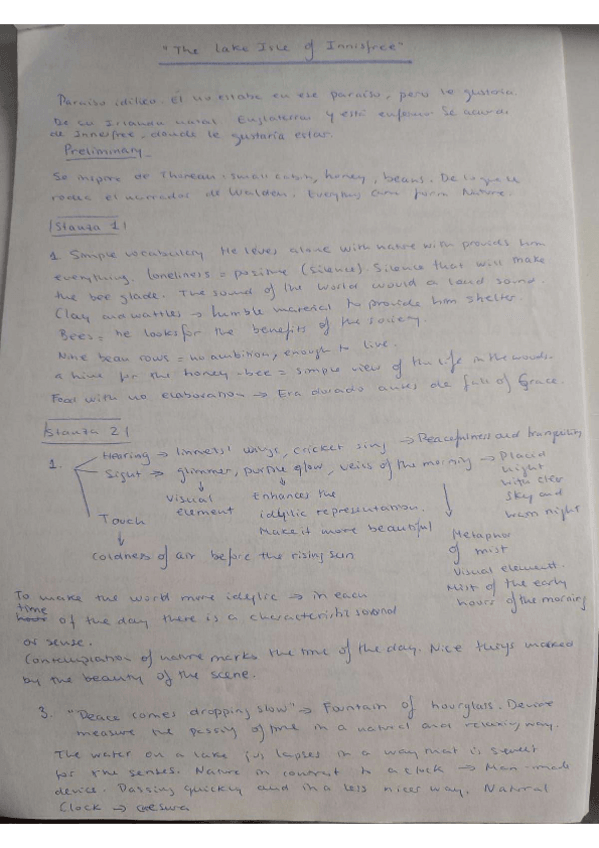 "The Lake Isle of Innisfree"
Paraíso idílico. Él no estaba en ese paraíso, pero le gustaría.
De su Irlanda natal. Englaterra y está enfermo. Se acuerda
de Innesfree, donde le gustaría estar.
Preliminary
Se inspira de Thoreau: small cabin, honey, beans. De lo que se
rodea el narrador de Walden. Everything came form Nature.
Stanza 1
1. Simple vocabulary. He leves alone with nature with provides him
everything. Loneliness = positive (silence). Silence that will make
the bee glade. The sound of the world would a loud sound.
Clay and wattles → humble material to provide him shelter.
Bees = he looks for the benefits of the society.
Nine bean rows = no ambition, enough to live.
a hive for the honey-bee = simple view of the life in the woods.
Food with no elaboration → Era dorada antes de fall of Grace.
Stanza 2
1. Hearing → linnets' wings, cricket sing → Peacefulness and tranquility
Sight → glimmer, purple glow, veils of the morning → Placid
night
with clear
sky and
warm night
Visual
element
Enhances the
idyllic representation.
Make it more beautiful
Metaphor
of mist
Visual element.
Mist of the early
hours of the morning
Touch
Coldness of air before the rising sun
To make the world more idyllic → in each
time
of the day there is a characteristic sound
or sense.
Contemplation of nature marks the time of the day. Nice marked
by the beauty of the scene.
3. "Peace comes dropping slow" → Fountain of hourglass. Device
measure the passing of time in a natural and relaxing way.
The water on a lake lapses in a way that is sweet
for the senses. Nature in contrast to a clock → Man-made
device. Passing quickly and in a less nicer way. Natural
Clock → cesura